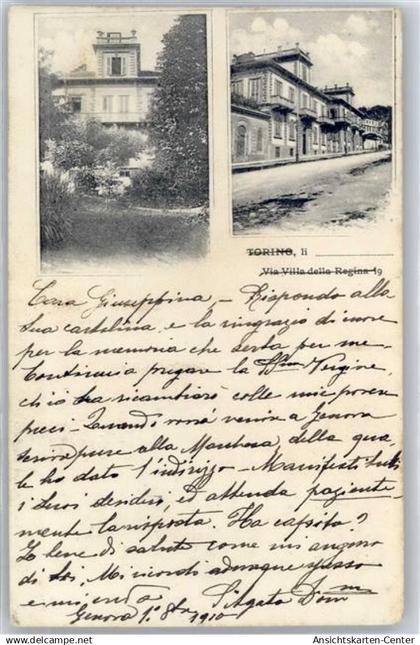 TORINO, li
Via Villa della Regina 19
Cara Giuseppina, - Rispondo alla
sua cartolina, e la ringrazio di cuore
per la memoria che serba per me -
Continuerà pregare la SSma Vergine,
ch'io ricambierò colle mie povere
preci - Quando vorrà venire a Genova
pure alla Marchesa, della qua
le ho dato l'indirizzo - Manifesti tutti
i suoi desideri, ed attenda paziente-
mente la risposta. Ha capito?
Io bene di salute come mi auguro
di Lei. Mi ricordi adunque spesso
e mi creda
Genova 1910
Ansichtskarten-Center.de